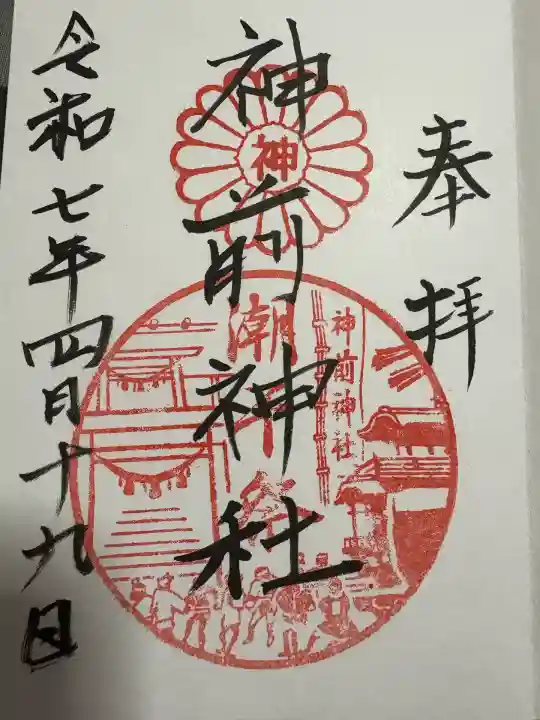 奉拝
神前神社
神
神前神社
潮干祭
令和七年四月十九日